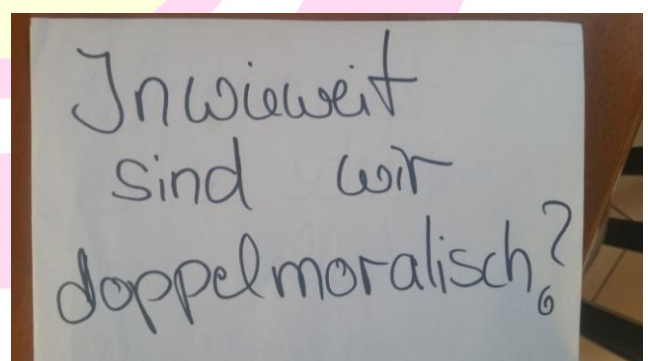 Inwieweit
sind wir
doppelmoralisch?